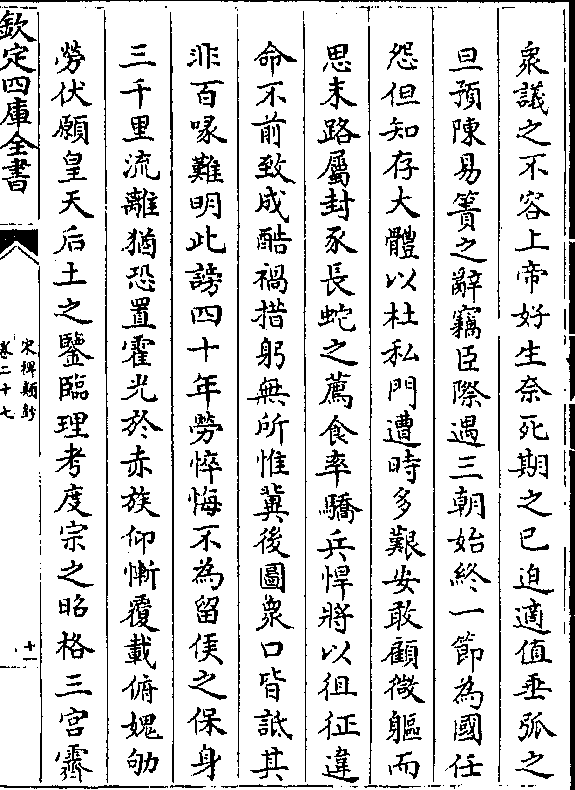 衆議之不容上帝好生奈死期之已迫適值垂弧之
旦預陳易簀之辭竊臣際遇三朝始終一節為國任
怨但知存大體以杜私門遭時多艱安敢顧微軀而
思末路屬封豕長蛇之薦食率驕兵悍將以徂征違
命不前致成酷禍措躬無所惟冀後圖衆口皆詆其
非百喙難明此謗四十年勞悴悔不為留侯之保身
三千里流離猶恐置霍光於赤族仰慚覆載俯媿劬
勞伏願皇天后土之鑒臨理考度宗之昭格三宮霽
欽定四庫全書
宋稗類鈔
卷二十七
十一